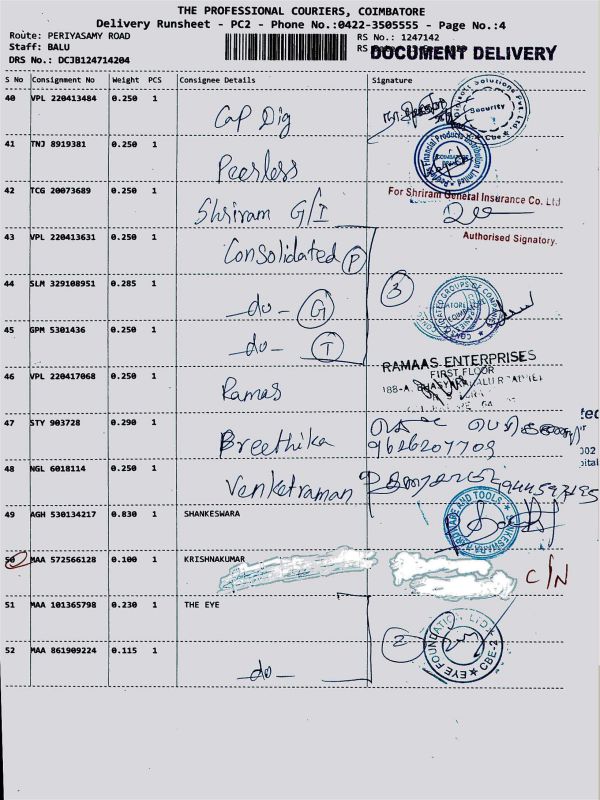 THE PROFESSIONAL COURIERS, COIMBATORE
Delivery Runsheet - PC2 - Phone No.:0422-3505555 - Page No.:4
Route: PERIYASAMY ROAD
RS No.: 1247142
Staff: BALU
RS
DOCUMENT DELIVERY
DRS No.: DCJB124714204
S No Consignment No Weight PCS Consignee Details Signature
40 VPL 220413484 0.250 1 Cap Dig
Security
Cbe
41 TNJ 8919381 0.250 1 Peerless
42 TCG 20073689 0.250 1 Shriram G/I
For Shriram General Insurance Co. Ltd
Authorised Signatory.
43 VPL 220413631 0.250 1 Consolidated P
44 SLM 329108951 0.285 1 do G
3
45 GPM 5301436 0.250 1 do T
46 VPL 220417068 0.250 1 Ramas
RAMAAS ENTERPRISES
FIRST FLOOR
47 STY 903728 0.290 1 Breethika
9626207709
48 NGL 6018114 0.250 1 Venketraman
49 AGH 530134217 0.830 1 SHANKESWARA
50 MAA 572566128 0.100 1 KRISHNAKUMAR
C/N
51 MAA 101365798 0.230 1 THE EYE
2
EYE FOUNDATION LTD. CBE-2
52 MAA 861909224 0.115 1 do